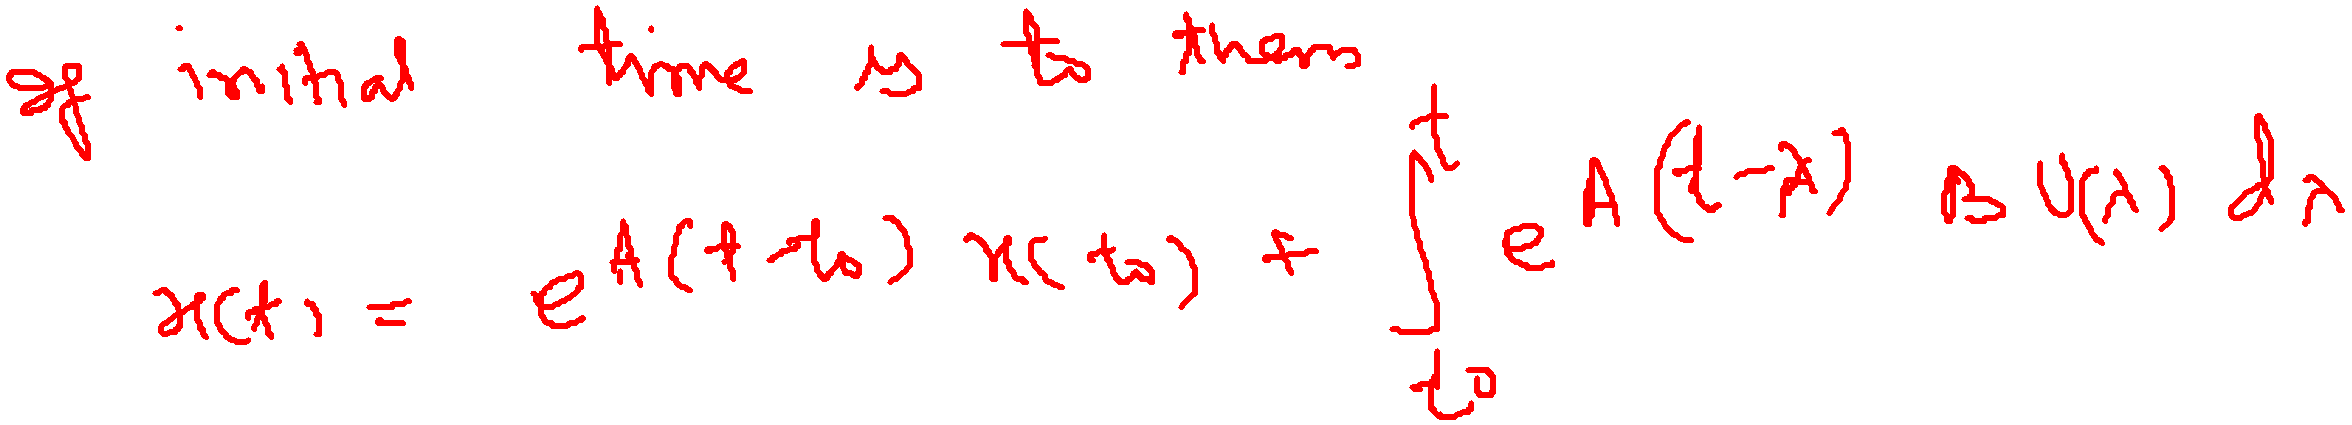 If initial time is t₀ then
x(t) = e^{A(t-t₀)} x(t₀) + ∫_{t₀}^{t} e^{A(t-λ)} B U(λ) dλ